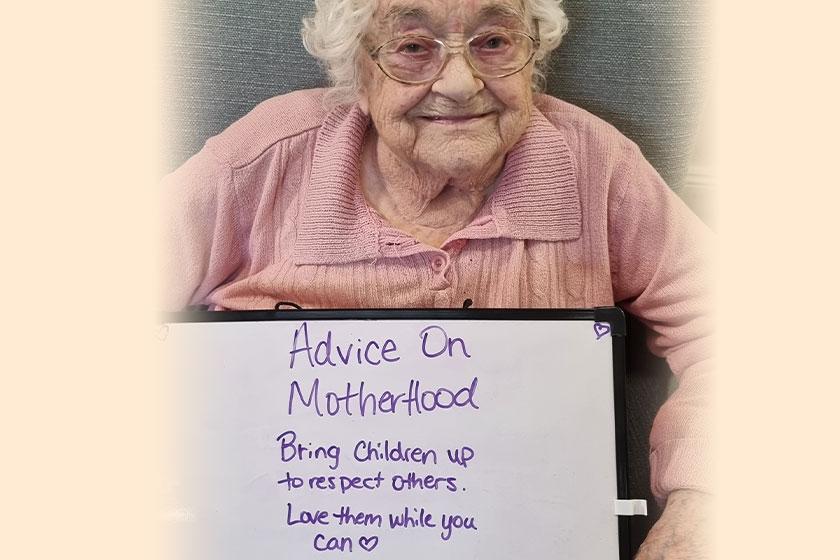 Advice On
Motherhood
Bring Children up
to respect others.
Love them while you
can♡